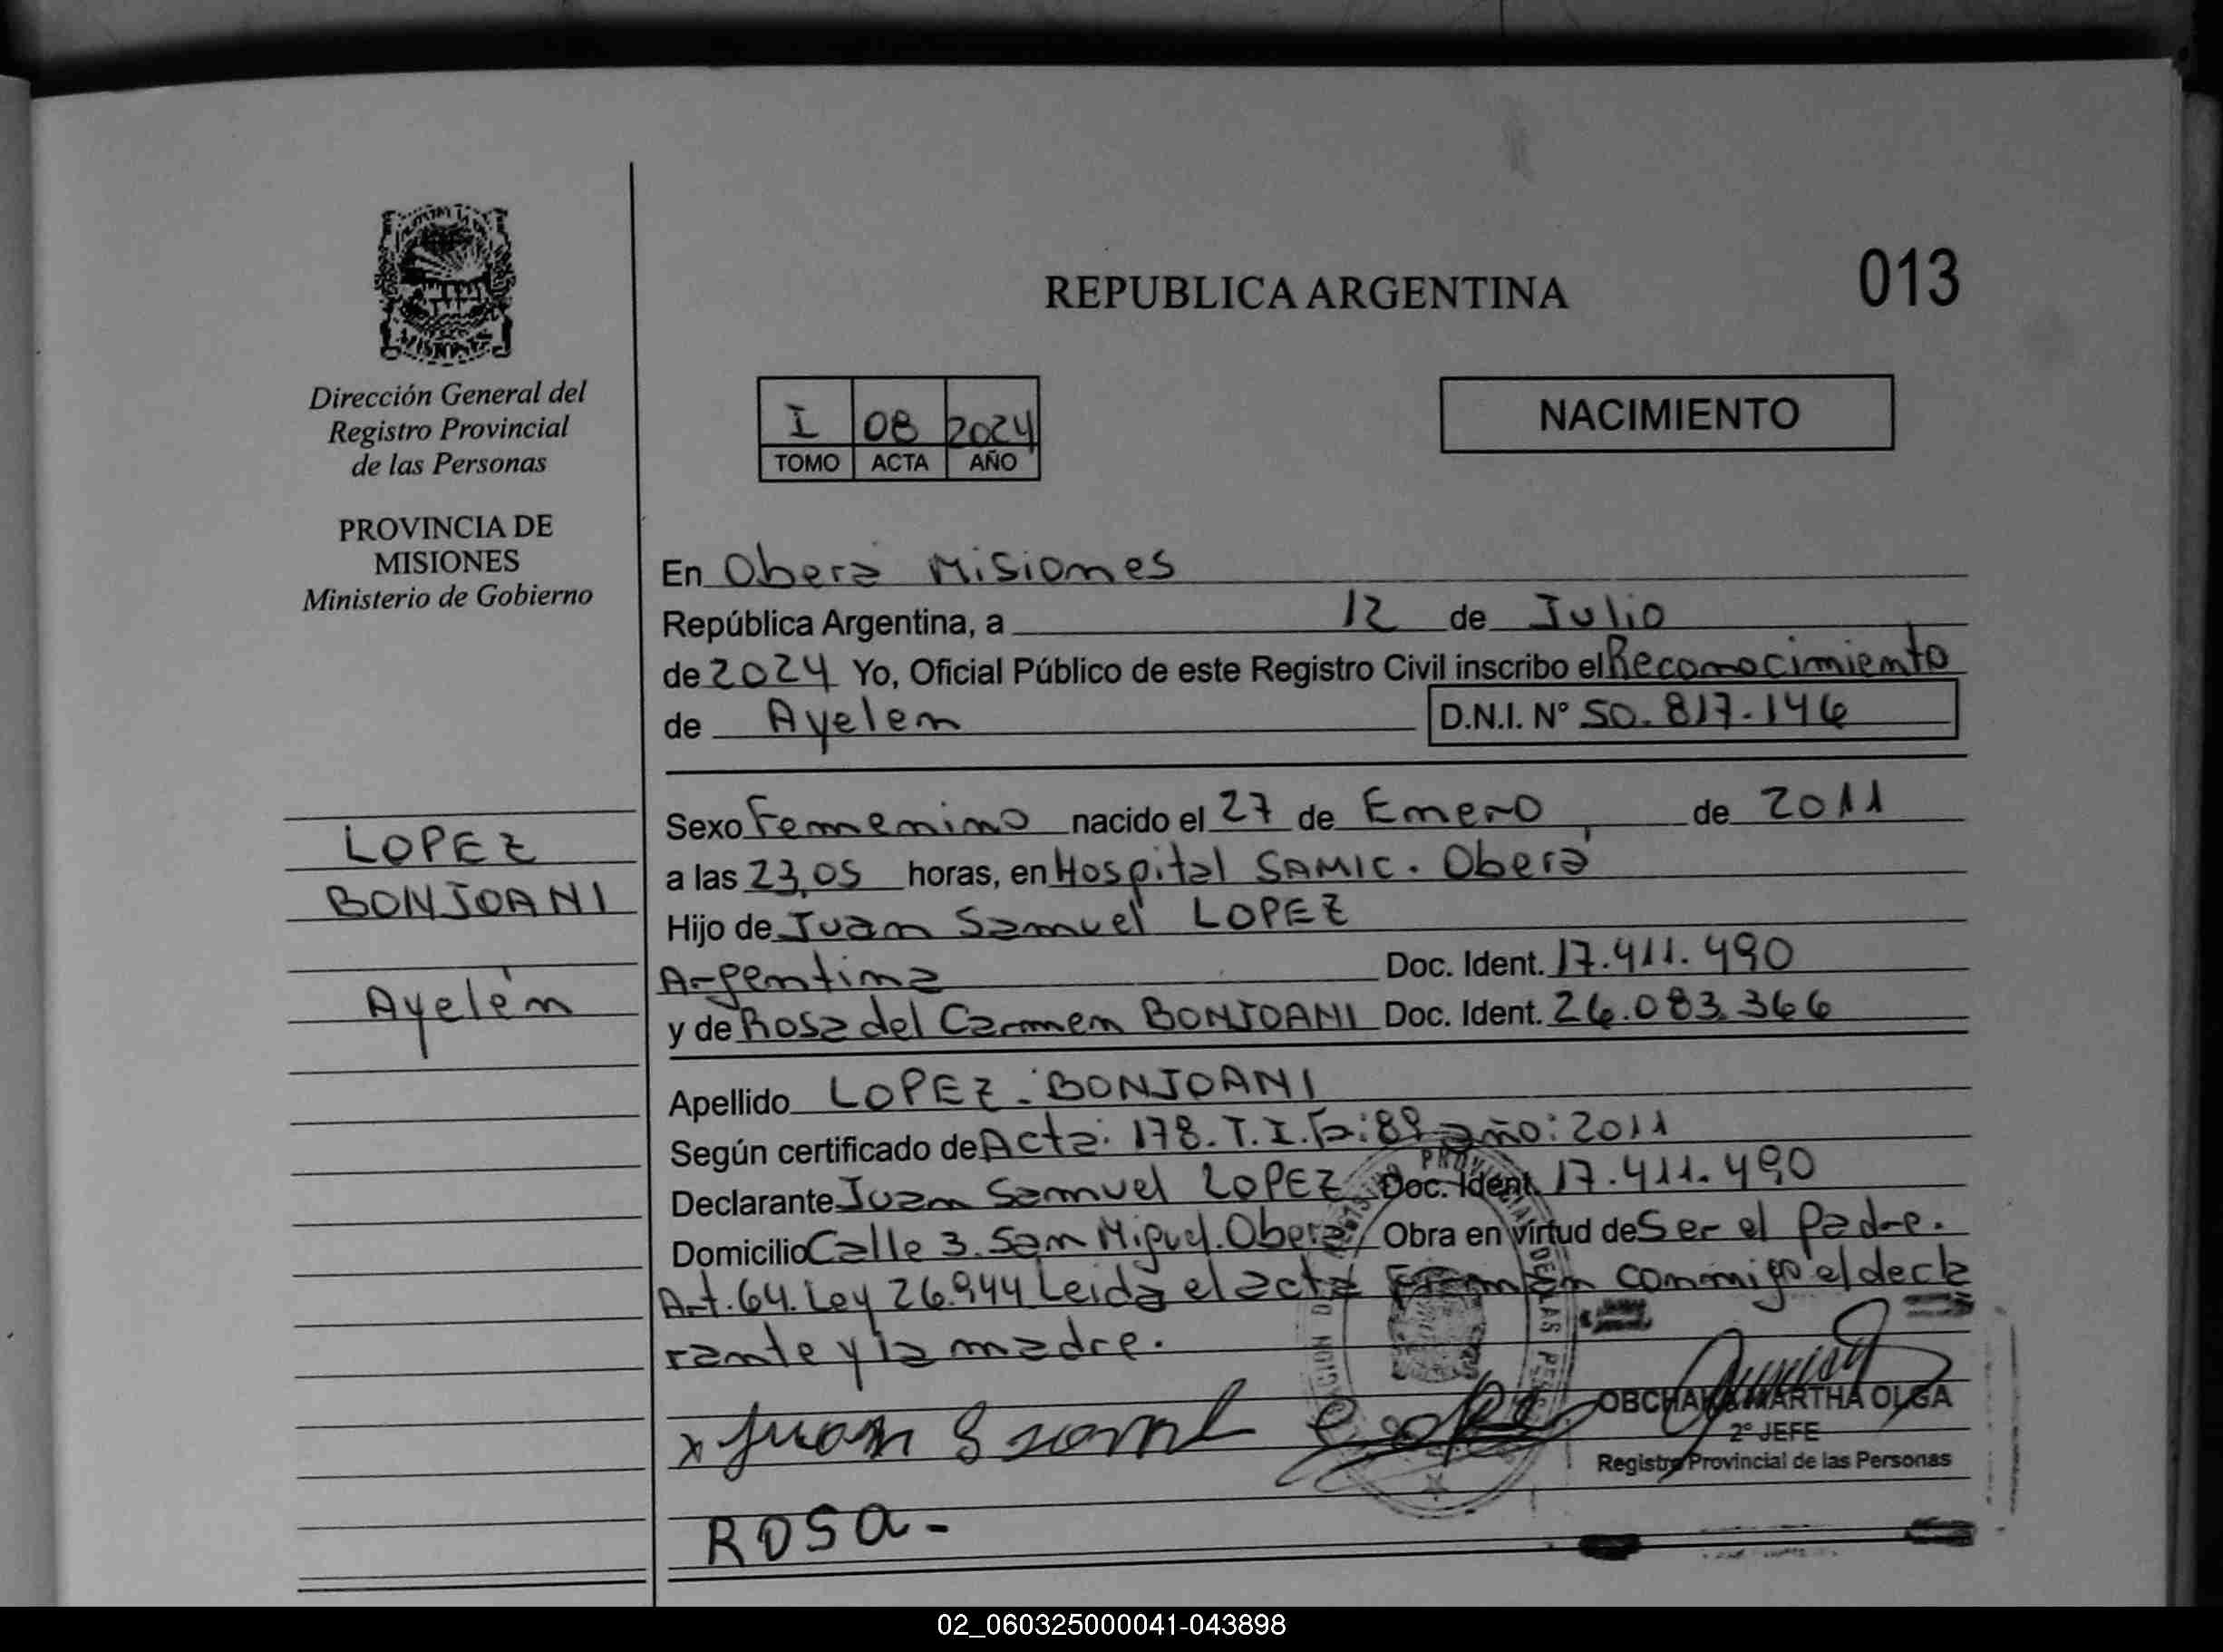 MISIONES
Dirección General del
Registro Provincial
de las Personas
PROVINCIA DE
MISIONES
Ministerio de Gobierno
LOPEZ
BONJOANI
Ayelén
REPUBLICA ARGENTINA
013
I 08 2024
TOMO ACTA AÑO
NACIMIENTO
En Obera Misiones
República Argentina, a 12 de Julio
de 2024 Yo, Oficial Público de este Registro Civil inscribo el Reconocimiento
de Ayelen D.N.I. N° 50.817.146
Sexo Femenino nacido el 27 de Enero de 2011
a las 23,05 horas, en Hospital SAMIC. Oberá
Hijo de Juan Samuel LOPEZ
Argentina Doc. Ident. 17.411.490
y de Rosa del Carmen BONJOANI Doc. Ident. 26.083.366
Apellido LOPEZ - BONJOANI
Según certificado de Acta: 178. T. I. Fº: 89 año: 2011
Declarante Juan Samuel LOPEZ Doc. Ident. 17.411.490
Domicilio Calle 3. San Miguel. Obera Obra en virtud de Ser el Padre.
Art. 64. Ley 26.944 Leida el acta Firman conmigo el decla
rante y la madre.
x Juan Samuel
OBCHANA MARTHA OLGA
2º JEFE
Registro Provincial de las Personas
ROSA -
02_060325000041-043898